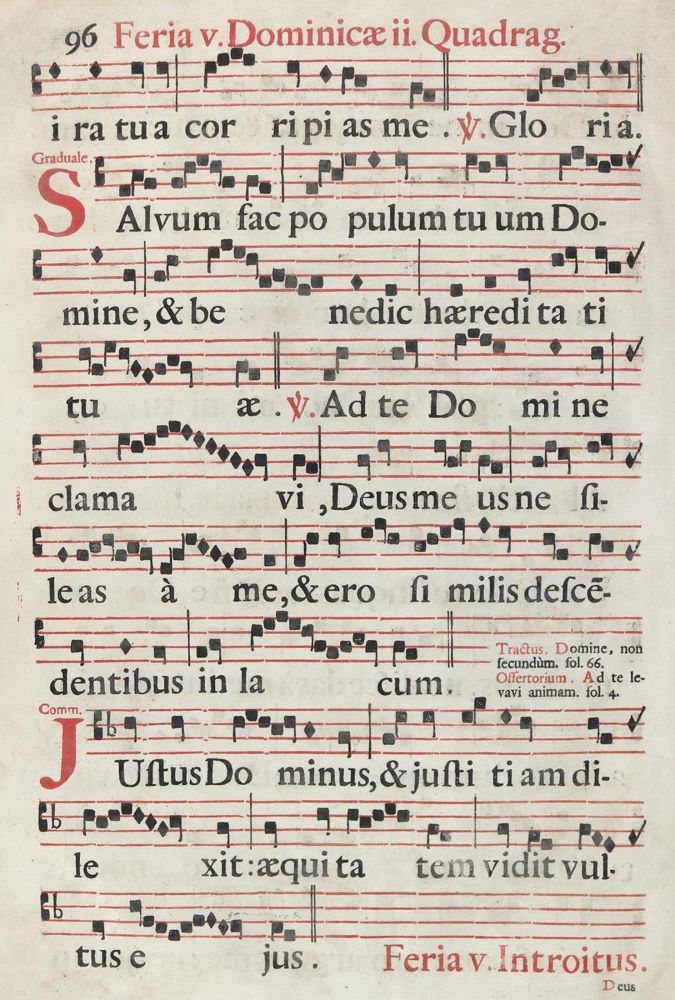 96 Feria v. Dominicæ ii. Quadrag.
i ra tu a cor ri pi as me . ℣. Glo ri a.
Graduale.
SAlvum fac po pulum tu um Do-
mine, & be nedic hæredi ta ti
tu æ . ℣. Ad te Do mi ne
clama vi , Deus me us ne ſi-
le as à me, & ero ſi milis deſcē-
dentibus in la cum.
Tractus. Domine, non
ſecundùm. fol. 66.
Offertorium . Ad te le-
vavi animam. fol. 4.
Comm.
JUſtus Do minus, & juſti ti am di-
le xit : æqui ta tem vidit vul-
tus e jus .
Feria v. Introitus.
Deus